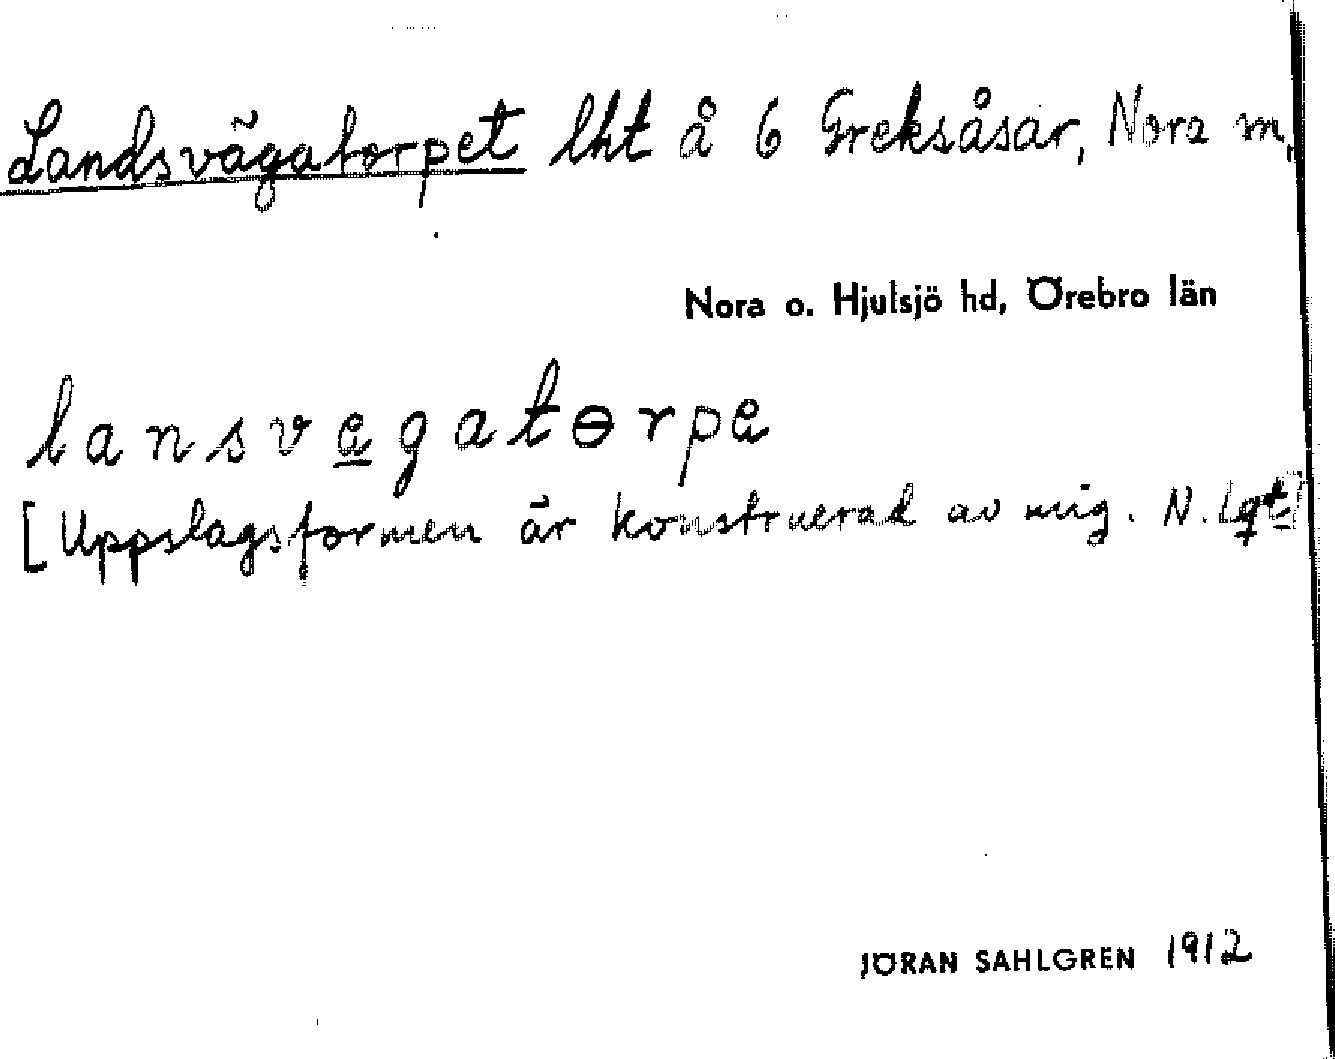 Landsvägatorpet lht å 6 Greksåsar, Nora m,
Nora o. Hjulsjö hd, Örebro län
lansvegatɵrpe
[Uppslagsformen är konstruerad av mig. N. Lqt]
JÖRAN SAHLGREN 1912